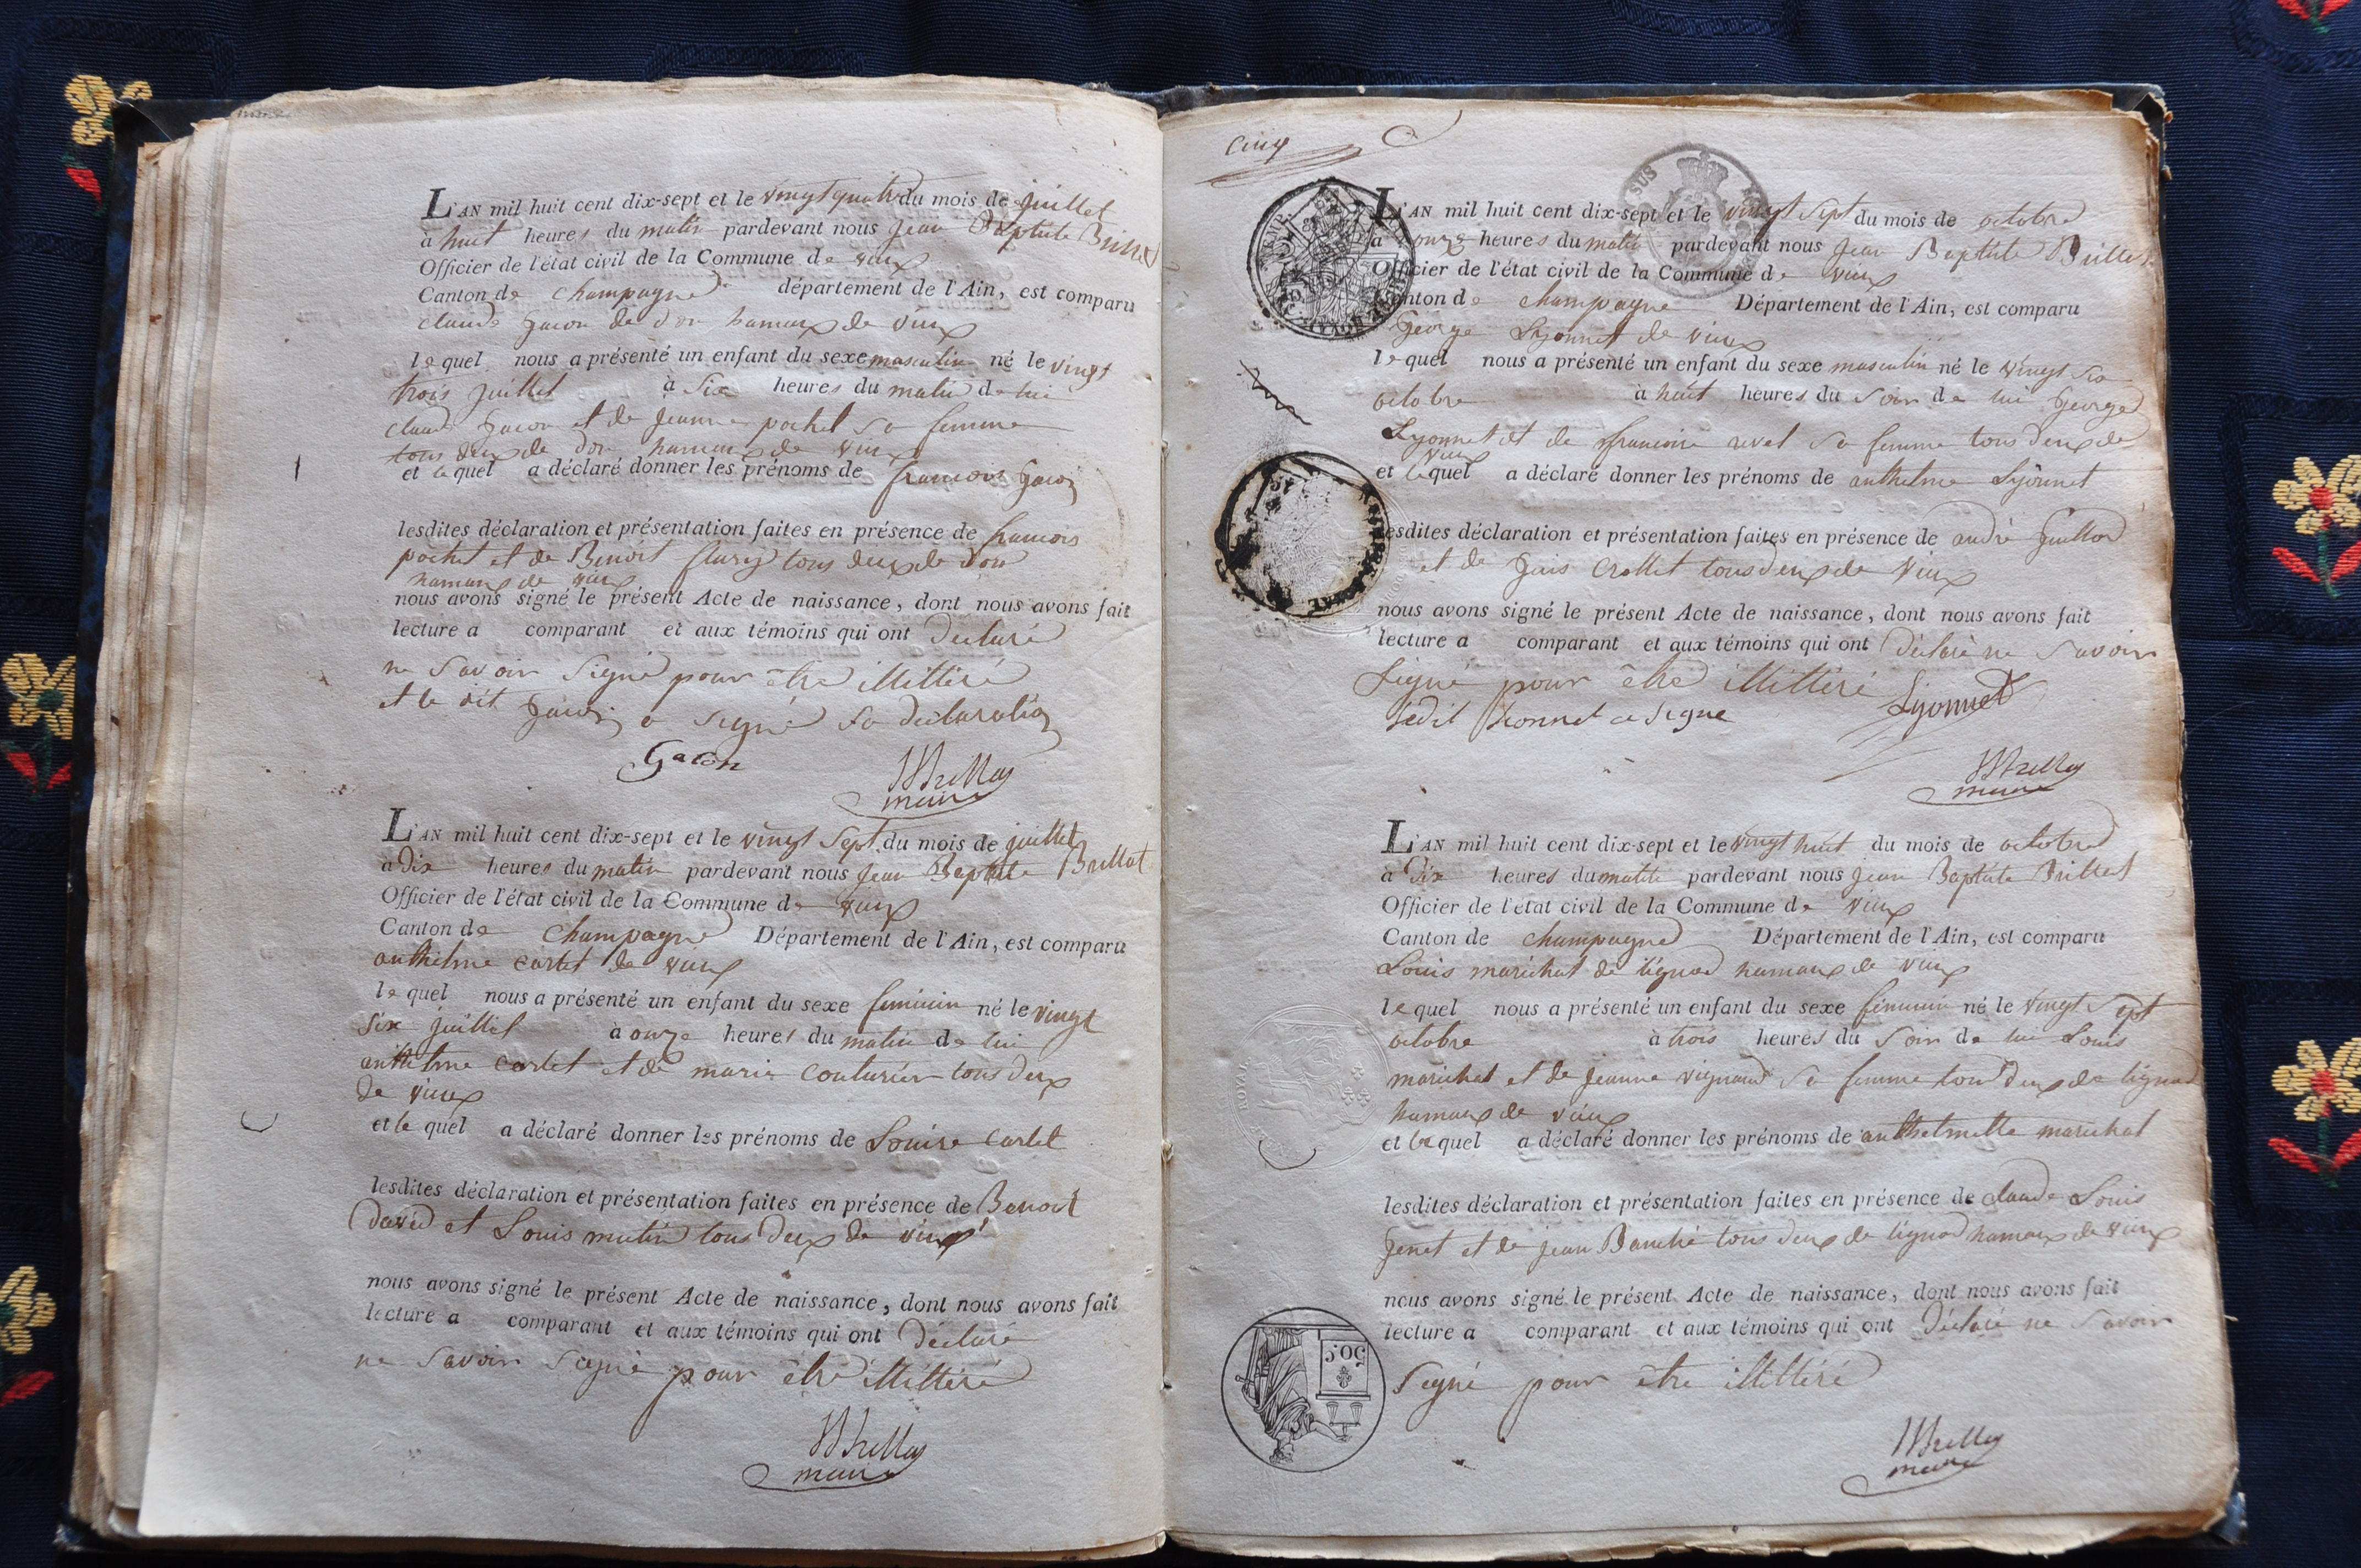 L'AN mil huit cent dix-sept et le vingt quatre du mois de juillet
à huit heures du matin pardevant nous Jean Baptiste Brillat
Officier de l'état civil de la Commune de vieux
Canton de Champagne département de l'Ain, est comparu
claude gacon de don hamaux de vieux
lequel nous a présenté un enfant du sexe masculin né le vingt
trois juillet à six heures du matin de lui
claude gacon et de jeanne pochet sa femme
tous deux de don hamaux de vieux
et lequel a déclaré donner les prénoms de francois gacon
lesdites déclaration et présentation faites en présence de francois
pochet et de Benoit flury tous deux de don
hamaux de vieux
nous avons signé le présent Acte de naissance, dont nous avons fait
lecture a comparant et aux témoins qui ont déclaré
ne savoir signé pour être illittéré
et le dit gacon a signé sa déclaration
Gacon
Brillat
maire
L'AN mil huit cent dix-sept et le vingt sept du mois de juillet
a dix heures du matin pardevant nous jean Baptiste Brillat
Officier de l'état civil de la Commune de vieux
Canton de Champagne Département de l'Ain, est comparu
anthelme cartet de vieux
lequel nous a présenté un enfant du sexe feminin né le vingt
six juillet à onze heures du matin de lui
anthelme cartet et de marie couturier tous deux
de vieux
et le quel a déclaré donner les prénoms de Louise cartet
lesdites déclaration et présentation faites en présence de Benoit
david et Louis mutin tous deux de vieux
nous avons signé le présent Acte de naissance, dont nous avons fait
lecture a comparant et aux témoins qui ont déclaré
ne savoir signé pour être illittéré
Brillat
maire
cinq
L'AN mil huit cent dix-sept et le vingt sept du mois de octobre
a onze heures du matin pardevant nous jean Baptiste Brillat
Officier de l'état civil de la Commune de vieux
Canton de champagne Département de l'Ain, est comparu
george Lyonnet de vieux
lequel nous a présenté un enfant du sexe masculin né le vingt six
octobre à huit heures du soir de lui george
Lyonnet et de francoise revet sa femme tous deux de
vieux
et lequel a déclaré donner les prénoms de anthelme Lyonnet
lesdites déclaration et présentation faites en présence de andré guillod
et de crottet tous deux de vieux
nous avons signé le présent Acte de naissance, dont nous avons fait
lecture a comparant et aux témoins qui ont déclaré ne savoir
signé pour être illittéré Lyonnet
ledit lionnet a signe
Brillat
maire
L'AN mil huit cent dix-sept et le vingt huit du mois de octobre
à dix heures du matin pardevant nous jean Baptiste Brillat
Officier de l'état civil de la Commune de vieux
Canton de champagne Département de l'Ain, est comparu
Louis marichat de lignod hamaux de vieux
lequel nous a présenté un enfant du sexe féminin né le vingt sept
octobre à trois heures du soir de lui Louis
marichat et de jeanne vignaud sa femme tous deux de lignod
hamaux de vieux
et lequel a déclaré donner les prénoms de anthelmette marichat
lesdites déclaration et présentation faites en présence de claude Louis
genet et de jean Banché tous deux de lignod hamaux de vieux
nous avons signé le présent Acte de naissance, dont nous avons fait
lecture a comparant et aux témoins qui ont déclaré ne savoir
signé pour être illittéré
ROYAL
50 c
Brillat
maire